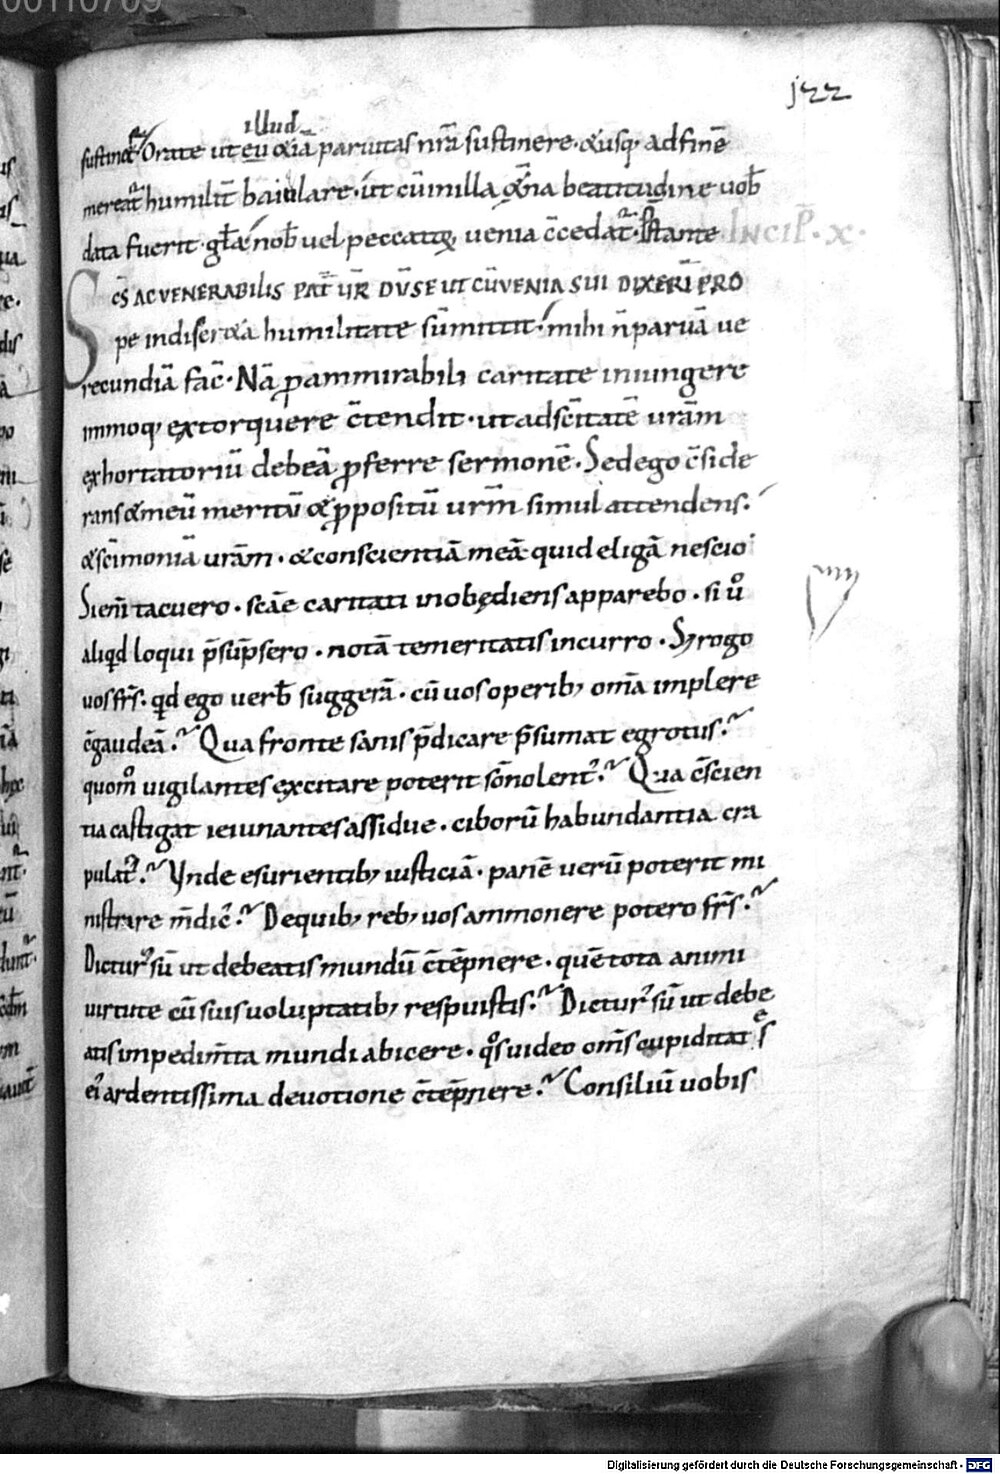 00110709
j22
illud
sustinet᷑. Orate ut eu &iā paruitas nr̄a sustinere. &usq; ad finē
mereat᷑ humilit̄ baiulare. ut cū in illa &̄na beatitudine uob̄
data fuerit gl̄a. nob̄ uel peccatoꝝ uenia c̄cedat᷑. p̄stante Incip̄. X.
Sc̄s ac uenerabilis pat̄ ur̄ dū se ut cū uenia sui dixerī pro
pe indiscr&a humilitate sūmittit. mihi n̄ paruā ue
recundiā fac̄. Nā ꝑ ammirabili caritate iniungere
immoq; extorquere c̄tendit. ut ad sc̄itatē urām
exhortatoriū debeā ꝓferre sermonē. Sed ego c̄side
rans & meū meritū & ꝓpositū urm̄ simul attendens.
& sc̄imoniā urām. & conscientiā meā quid eligā nescio
Si eni᷑ tacuero. sc̄ae caritati inobędiens apparebo. si uͦ
aliqd loqui p̄sūpsero. notā temeritatis incurro. Sȝ rogo
uos frs̄. qd ego uerb̄ suggerā. cū uos operib; om̄a implere
c̄gaudeā. Qua fronte sanis p̄dicare p̄sumat egrotus.
quom̊ uigilantes excitare poterit sōnolent᷒. Qua c̄scien
tia castigat ieiunantes assidue. ciborū habundantia cra
pulat᷒. Vnde esurientib; iusticiā. panē uerū poterit mi
nistrare m̄dic᷒. De quib; reb; uos ammonere potero frs̄.
Dictur᷒ sū ut debeatis mundū c̄tēpnere. quē tota animi
uirtute cū suis uoluptatib; respuistis. Dictur᷒ sū ut debe
atis impedim̄ta mundi abicere. qͦs uideo om̄s cupiditates
ei᷒ ardentissima deuotione c̄tēpnere. Consiliū uobis
Digitalisierung gefördert durch die Deutsche Forschungsgemeinschaft - DFG